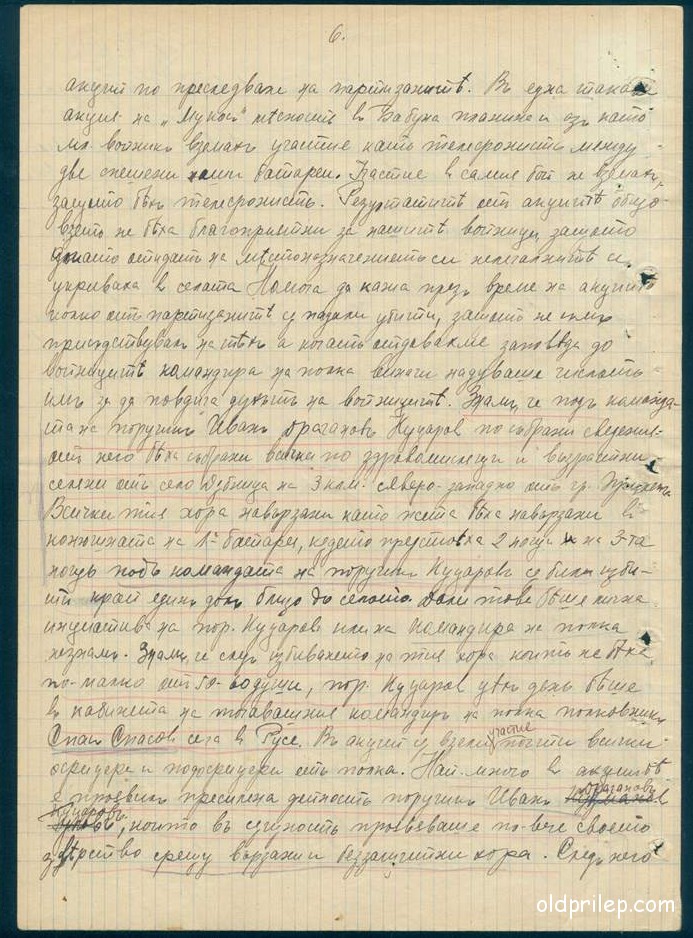 6.
акции по преследване на партизанитѣ. Въ една такава
акция на „Мукосъ" мѣсность въ Бабуна планина и азъ като
войникъ вземахъ участие като телефонистъ между
две батареи. Участие въ самия бой не вземахъ,
защото бѣхъ телефонистъ. Резултатитѣ отъ акциитѣ
не бѣха благоприятни за нашитѣ войници, защото
отидатъ на мѣстоназначението си нелегалнитѣ се
укриваха въ селата. Немога да кажа презъ време на акциитѣ
колко отъ партизанитѣ сѫ падали убити, защото не съмъ
присѫтствувалъ на тѣхъ а когато отдавахме заповѣдь до
войницитѣ командира на полка винаги надуваше числото
имъ за да повдига духътъ на войницитѣ. Знамъ, че подъ команда-
та на поручикъ Иванъ Драгановъ Куцаровъ по събрани сведения
отъ него бѣха събрани всички по здравомислещи и възрастни
селяни отъ село Дѣбница на 3 клм. северо-западно отъ гр. Прилепъ
Всички тия хора навързани като жита бѣха навързани въ
конюшната на 1-а батарея, кѫдето престояха 2 нощи и на 3-та
нощь подъ командата на поручикъ Куцаровъ се били изби-
ти край единъ долъ близо до селото. Дали това бѣше лична
инициатива на пор. Куцаровъ или на Командира на полка
незнамъ. Знамъ, че следъ избиването на тия хора които не бѣха
по-малко отъ 50-60 души, пор. Куцаровъ цѣлъ день бѣше
въ кабинета на тогавашния командиръ на полка полковникъ
Спасъ Спасовъ сега въ Русе. Въ акции сѫ взели участие почти всички
офицери и подофицери отъ полка. Най-много въ акциитѣ
е проявилъ пресилена дейность поручикъ Иванъ Драгановъ
Куцаровъ, който въ сѫщность проявяваше по-вече своето
звѣрство срещу вързани и беззащитни хора. Следъ него
oldprilep.com